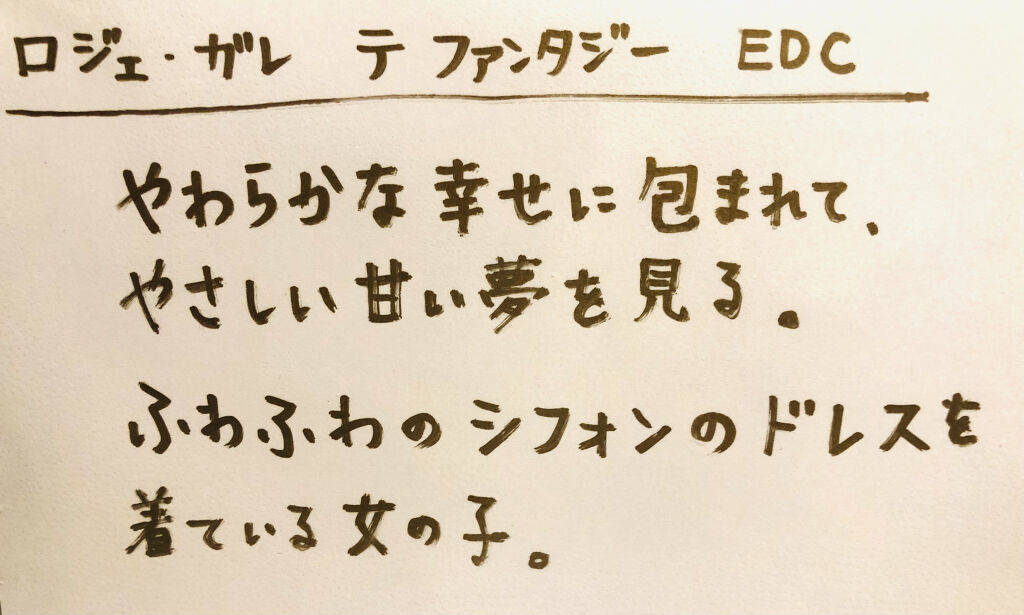 ロジェ・ガレ テ ファンタジー EDC
やわらかな幸せに包まれて、
やさしい甘い夢を見る。
ふわふわのシフォンのドレスを
着ている女の子。